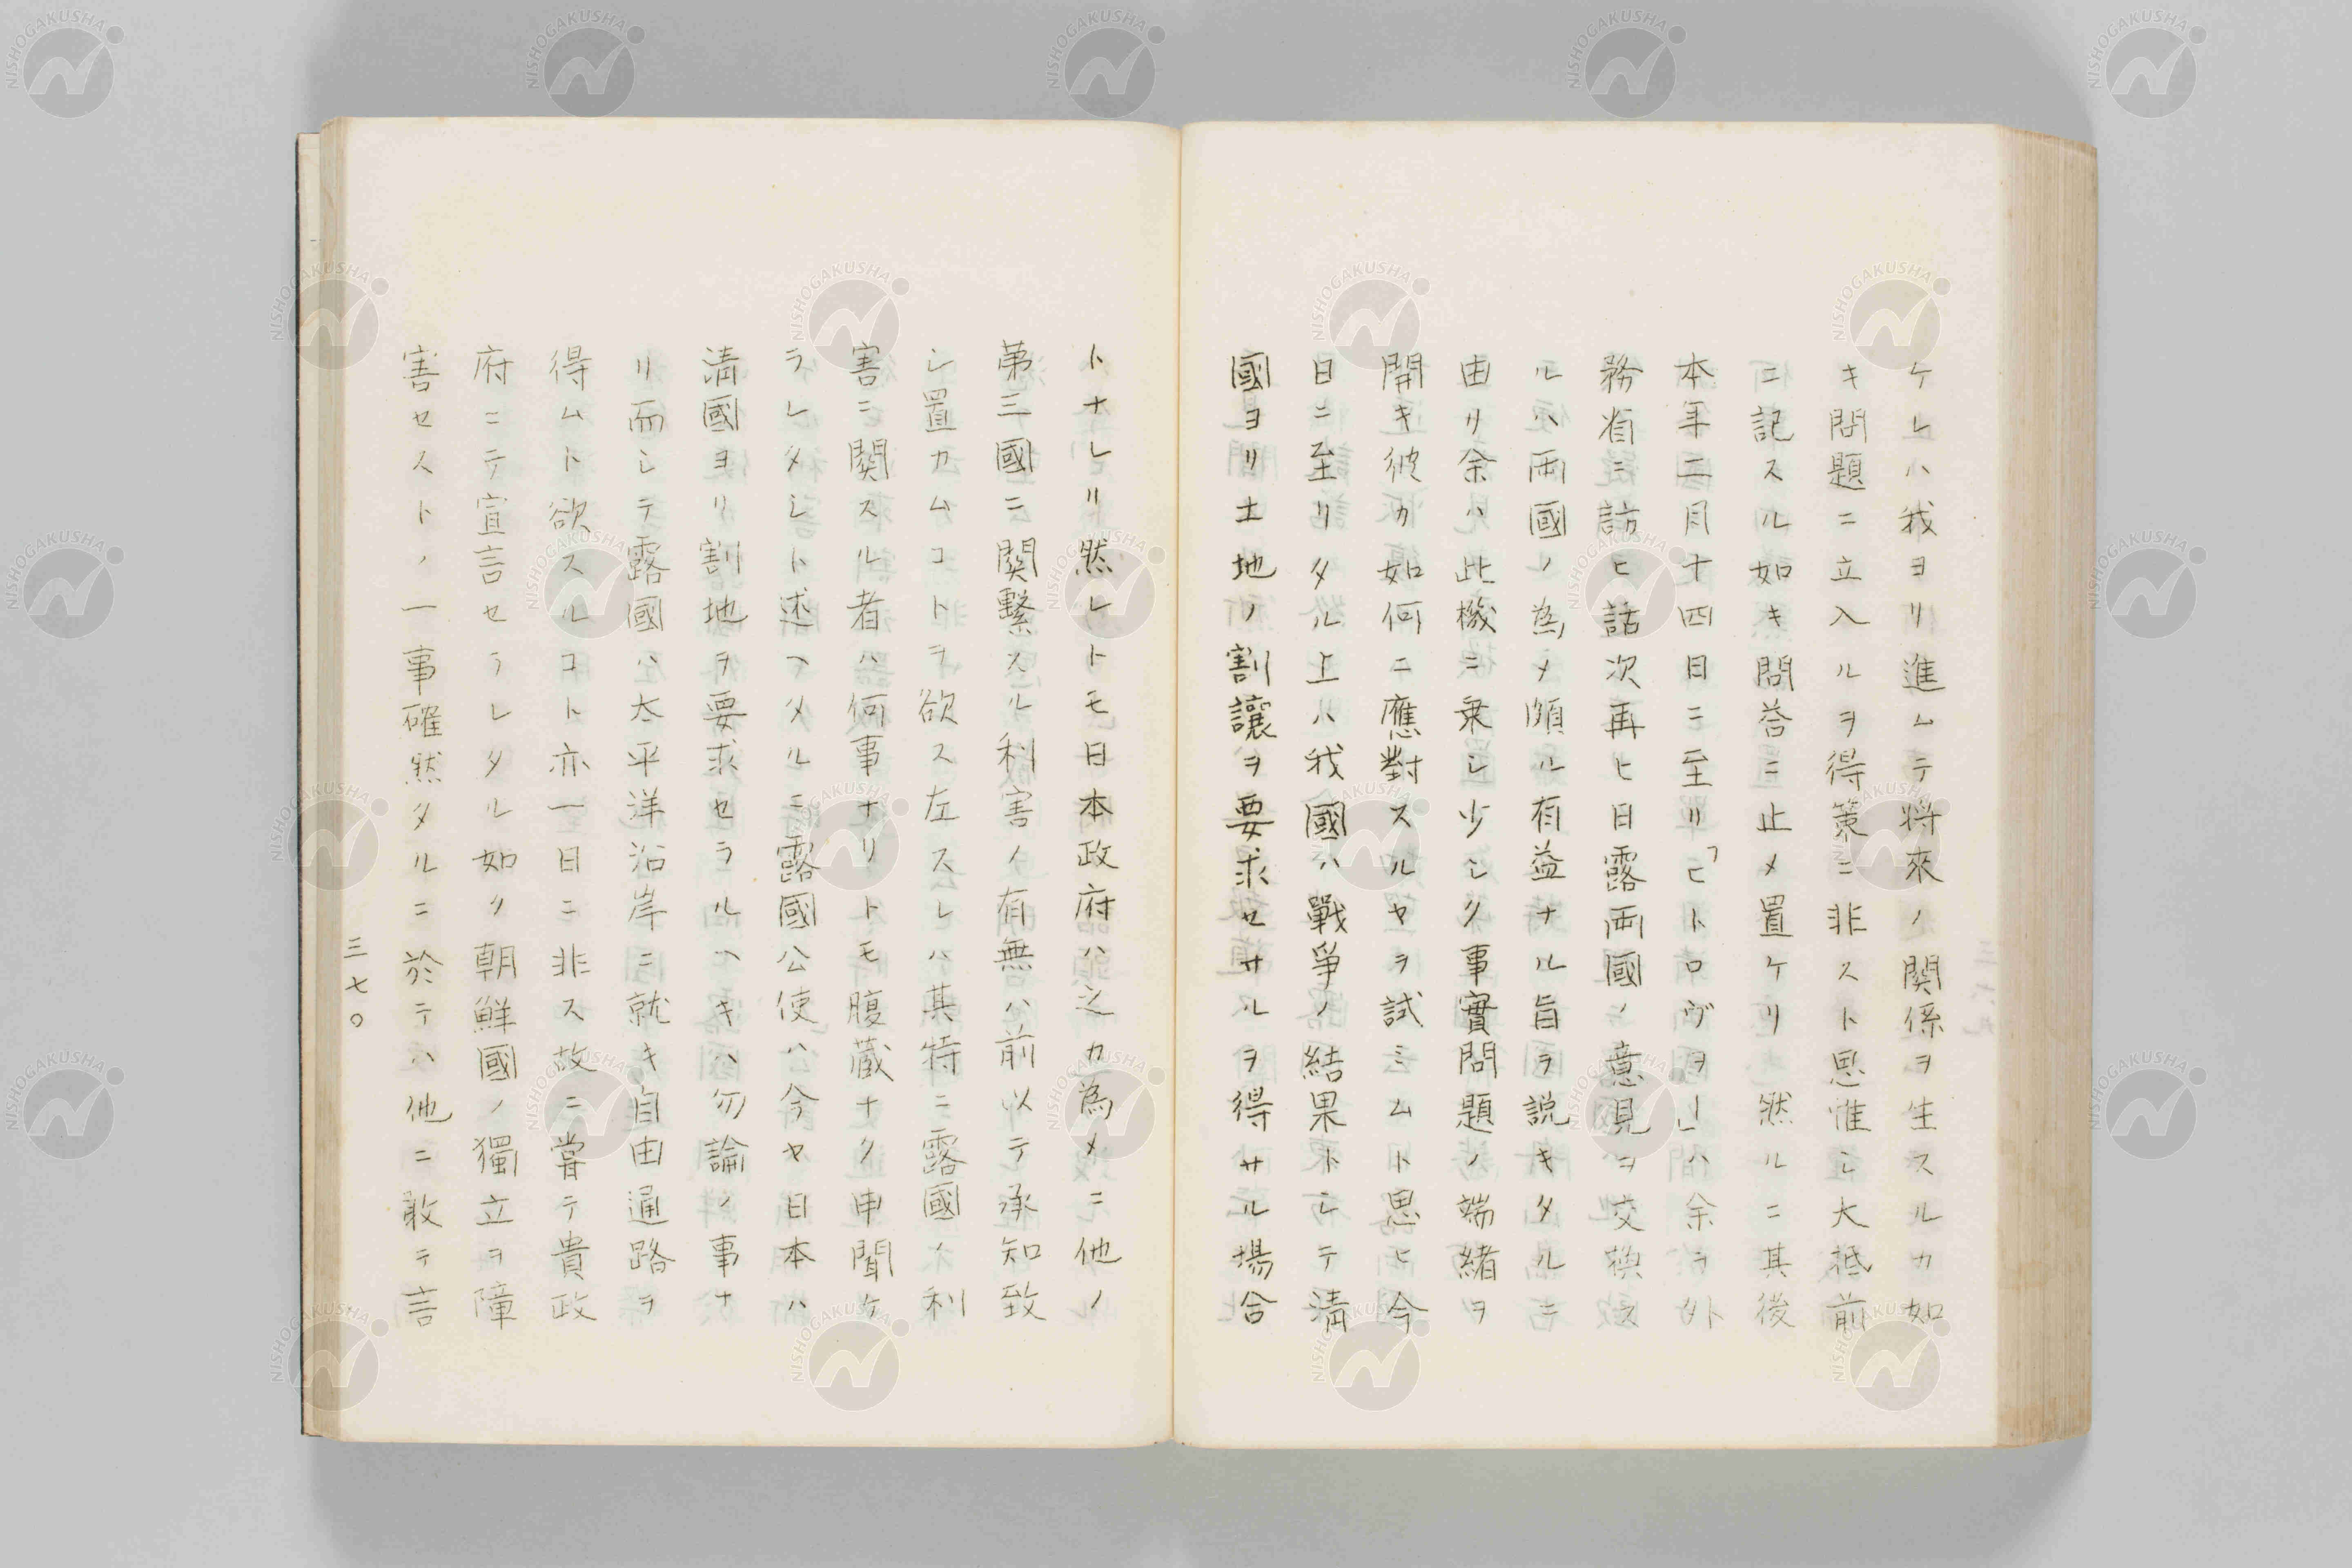 ケレハ我ヨリ進ムテ将來ノ関係ヲ生スルカ如
キ問題ニ立入ルヲ得策ニ非スト思惟シ大抵前
ニ記スル如キ問答ニ止メ置ケリ然ルニ其後
本年二月十四日ニ至リ「ヒトロヴヲー」ハ余ヲ外
務省ニ訪ヒ話次再ヒ日露両國ノ意見ヲ交換ス
ルハ両國ノ為メ頗ル有益ナル旨ヲ説キタルニ
由リ余ハ此機ニ乗シ少シク事實問題ノ端緒ヲ
開キ彼カ如何ニ應對スルヤヲ試ミムト思ヒ今
日ニ至リタル上ハ我國ハ戰爭ノ結果トシテ清
國ヨリ土地ノ割讓ヲ要求セサルヲ得サル場合
トナレリ然レトモ日本政府ハ之カ為メニ他ノ
第三國ニ関繫スル利害ノ有無ハ前以テ承知致
シ置カムコトヲ欲ス左スレハ其特ニ露國ノ利
害ニ関スル者ハ何事ナリトモ腹蔵ナク申聞ケ
ラレタシト述フタルニ露國公使ハ今ヤ日本ハ
清國ヨリ割地ヲ要求セラルヘキハ勿論ノ事ナ
リ而シテ露國ハ太平洋沿岸ニ就キ自由通路ヲ
得ムト欲スルコト亦一日ニ非ス故ニ嘗テ貴政
府ニテ宣言セラレタル如ク朝鮮國ノ獨立ヲ障
害セストノ一事確然タルニ於テハ他ニ敢テ言
三七〇
NISHOGAKUSHA